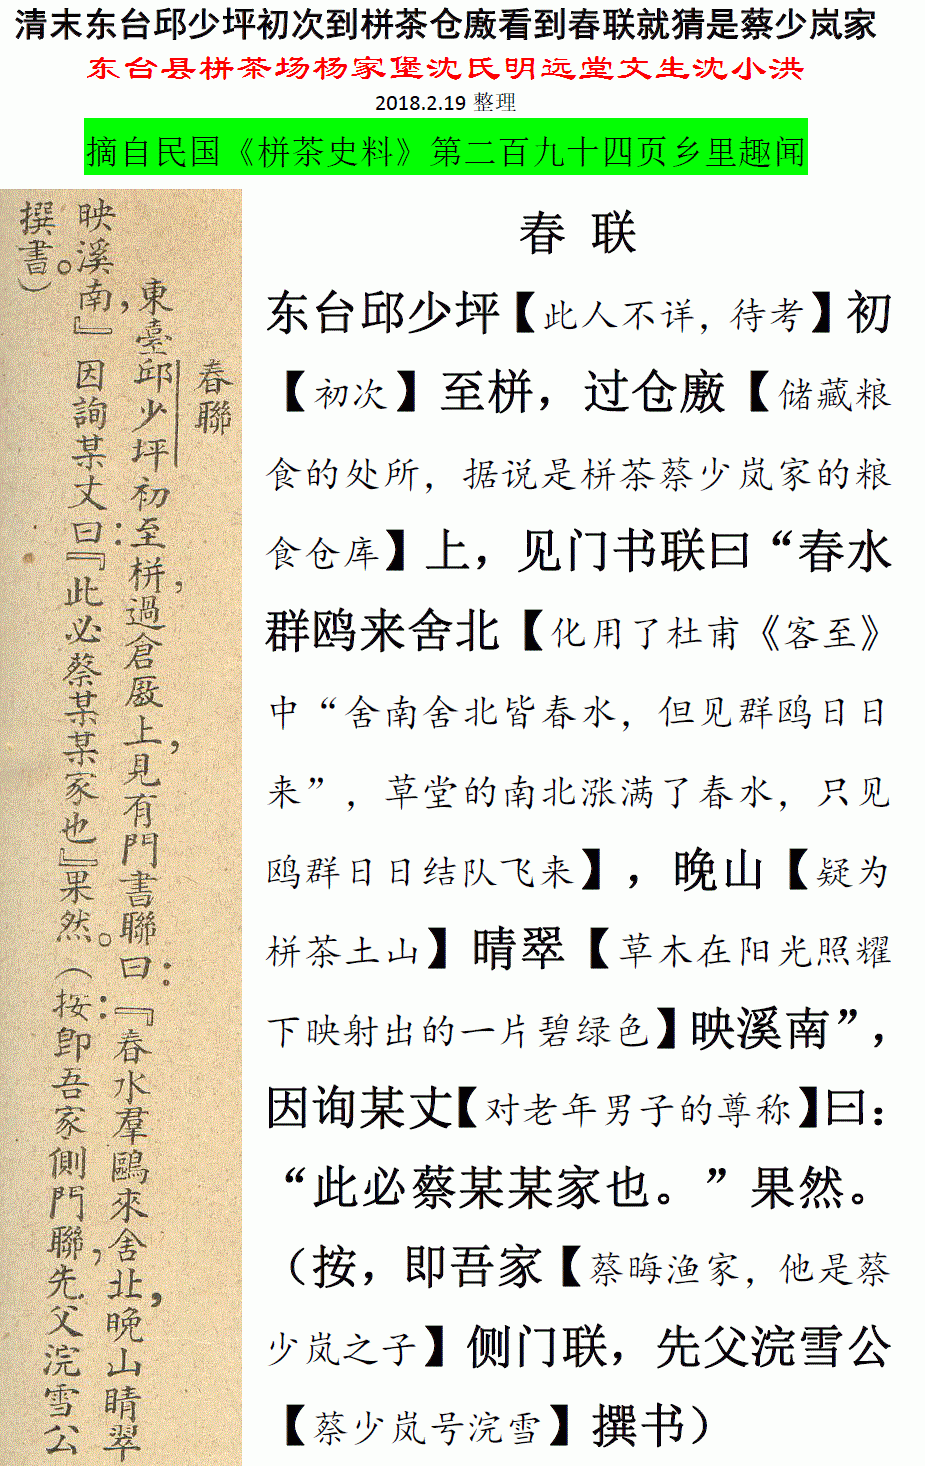 清末东台邱少坪初次到栟茶仓廒看到春联就猜是蔡少岚家
东台县栟茶场杨家堡沈氏明远堂文生沈小洪
2018.2.19 整理
摘自民国《栟茶史料》第二百九十四页乡里趣闻
春聯
東臺邱少坪初至栟，過倉廒上，見有門書聯曰：『春水羣鷗來舍北，晚山晴翠
映溪南』，因詢某丈曰：『此必蔡某某家也』果然。（按：卽吾家側門聯，先父浣雪公
撰書。）
春 联
东台邱少坪【此人不详，待考】初
【初次】至栟，过仓廒【储藏粮
食的处所，据说是栟茶蔡少岚家的粮
食仓库】上，见门书联曰“春水
群鸥来舍北【化用了杜甫《客至》
中“舍南舍北皆春水，但见群鸥日日
来”，草堂的南北涨满了春水，只见
鸥群日日结队飞来】，晚山【疑为
栟茶土山】晴翠【草木在阳光照耀
下映射出的一片碧绿色】映溪南”，
因询某丈【对老年男子的尊称】曰：
“此必蔡某某家也。”果然。
（按，即吾家【蔡晦渔家，他是蔡
少岚之子】侧门联，先父浣雪公
【蔡少岚号浣雪】撰书）